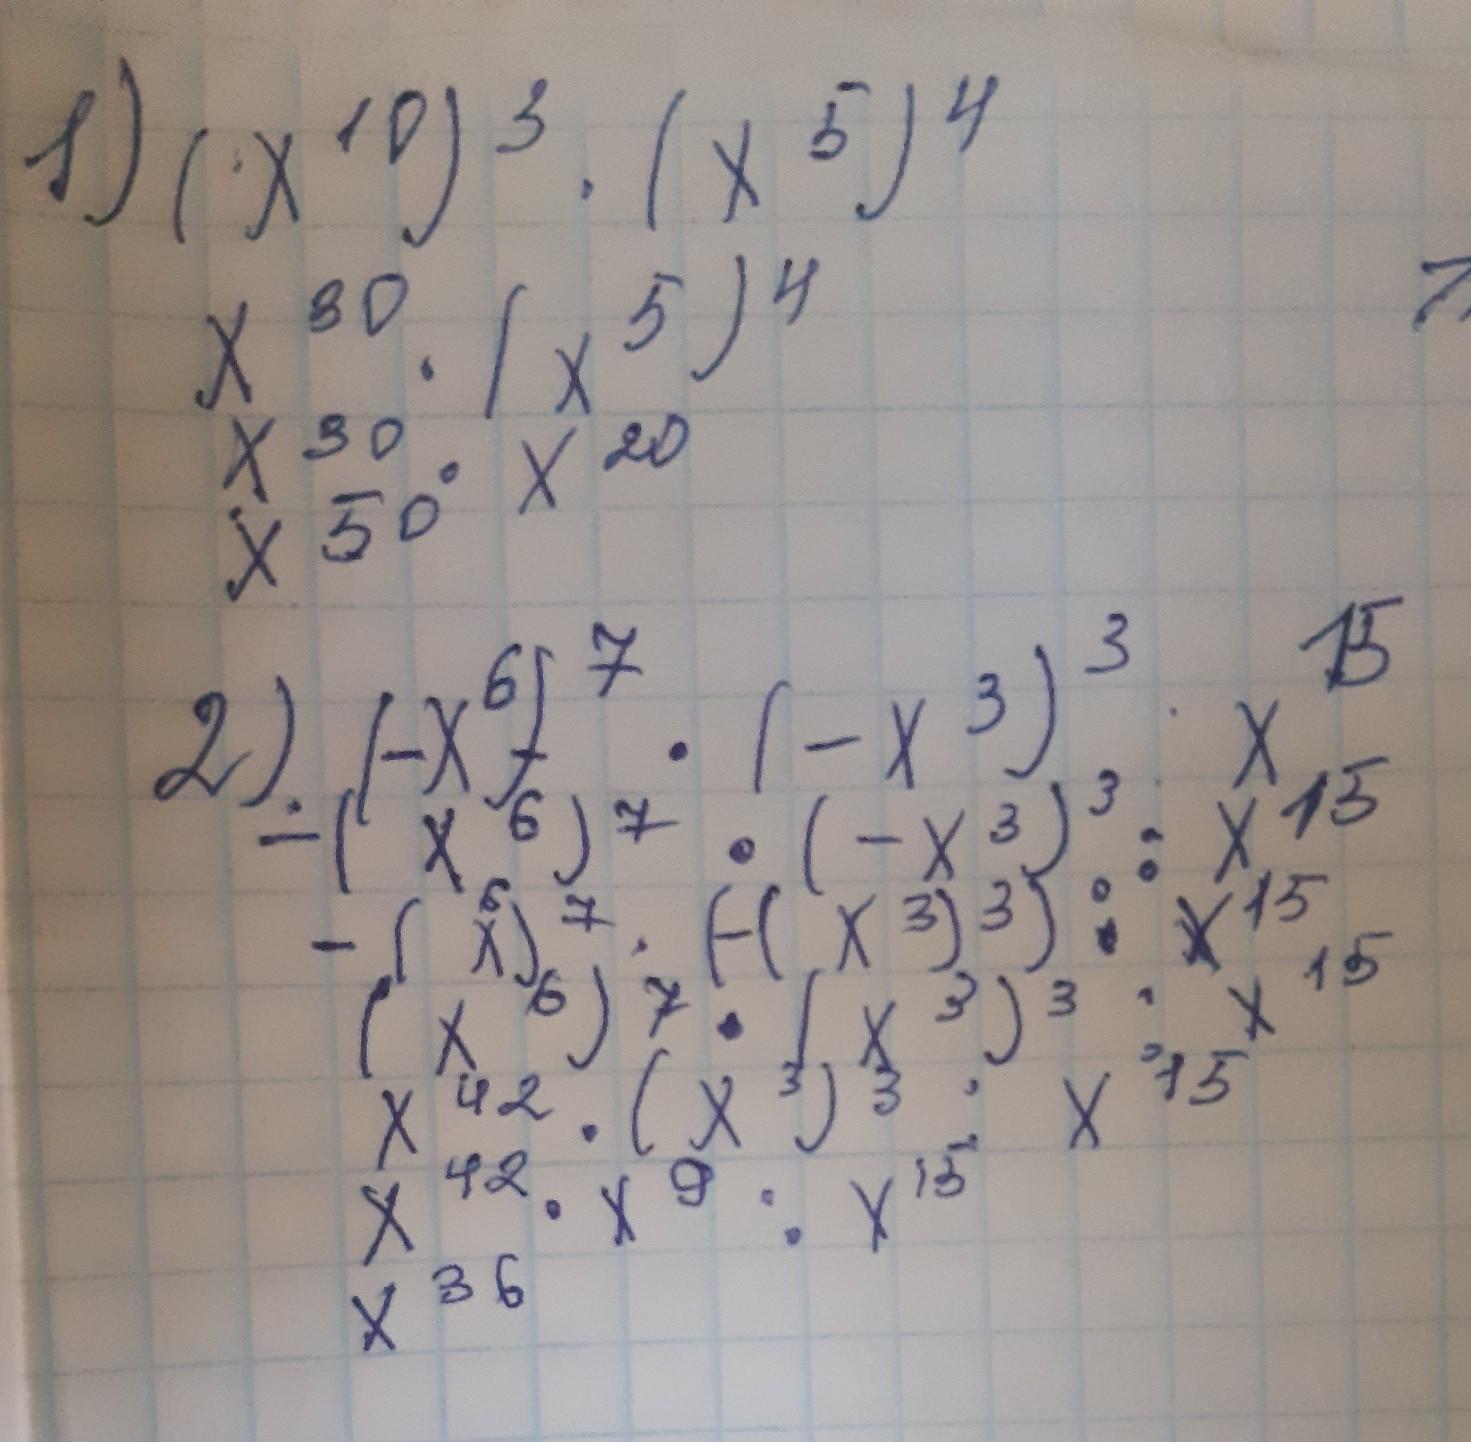 1) (x¹⁰)³ · (x⁵)⁴
x³⁰ · (x⁵)⁴
x³⁰ · x²⁰
x⁵⁰
2). (-x⁶)⁷ · (-x³)³ : x¹⁵
-(x⁶)⁷ · (-x³)³ : x¹⁵
-(x⁶)⁷ · (-(x³)³) : x¹⁵
(x⁶)⁷ · (x³)³ : x¹⁵
x⁴² · (x³)³ : x¹⁵
x⁴² · x⁹ : x¹⁵
x³⁶